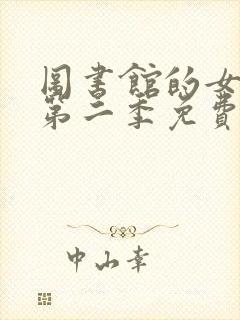 圖書館的女
第二季免費
中山幸